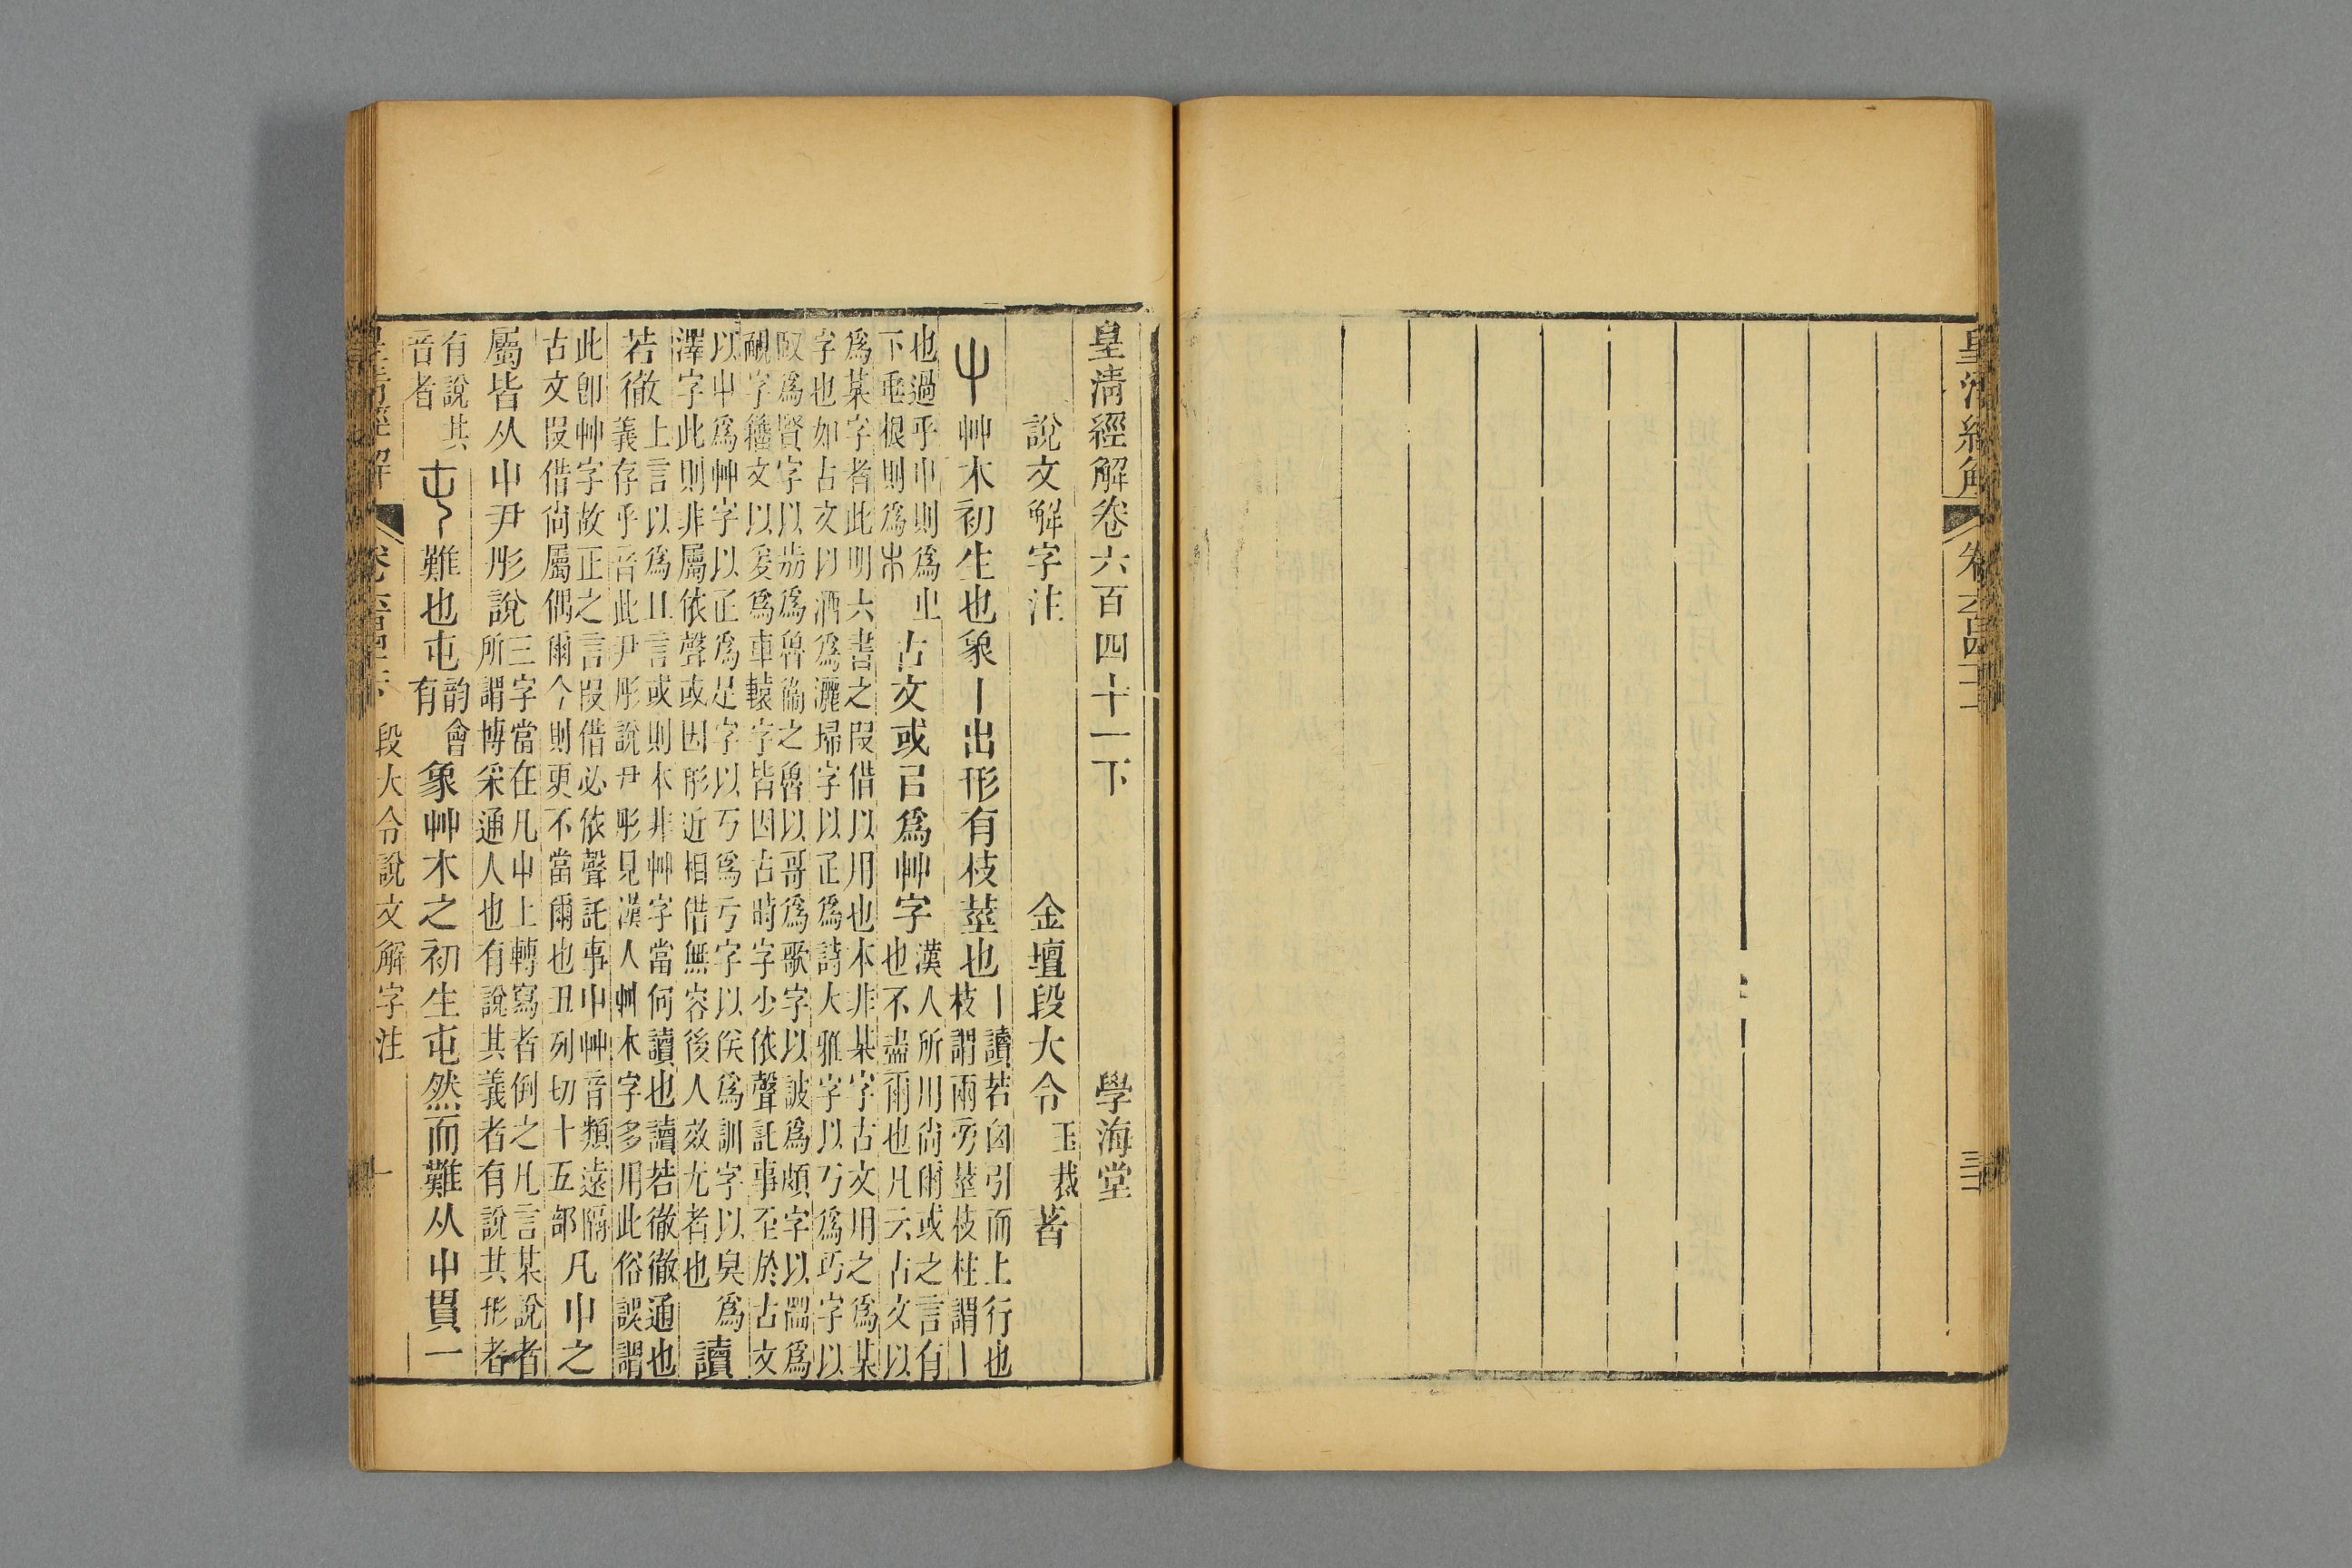 皇清經解卷六百四十一下　學海堂
說文解字注　金壇段大令玉裁著
屮艸木初生也象丨出形有枝莖也
丨讀若囟引而上行也
枝謂兩旁莖枝柱謂丨
也過乎屮則爲㞢
下垂根則爲𣎵
古文或㠯爲艸字
漢人所用尚爾或之言有
也不盡爾也凡云古文以
爲某字者此明六書之叚借以用也本非某字古文用之爲某
字也如古文以洒爲灑埽字以疋爲詩大雅字以丂爲巧字以
臤爲賢字以㫈爲魯衞之魯以哥爲歌字以詖爲頗字以𥁕爲
䩉字籒文以爰爲車轅字皆因古時字少依聲託事至於古文
以屮爲艸字以疋爲足字以丂爲亏字以㑞爲訓字以臭爲
澤字此則非屬依聲或因形近相借無容後人效尤者也
讀
若徹
上言以爲且言或則本非艸字當何讀也讀若徹徹通也
義存乎音此尹彤說尹彤見漢人艸木字多用此俗誤謂
此卽艸字故正之言叚借必依聲託事屮艸音類遠隔
古文叚借尚屬偶爾今則更不當爾也丑列切十五部
凡屮之
屬皆从屮尹彤說
三字當在凡屮上轉寫者倒之凡言某說者
所謂博采通人也有說其義者有說其形者
有說其
音者
屯難也屯
韵會
有
象艸木之初生屯然而難从屮貫一
段大令說文解字注　一